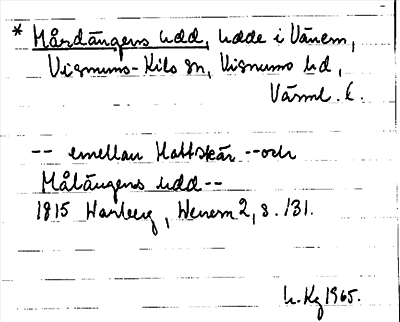 * Mårdängens udd, udde i Vänern,
Visnums-Kils sn, Visnums hd,
Värml. l.
-- emellan Hattskär -- och
Målängens udd --
1815 Warberg, Wenern 2, s. 131.
1965.